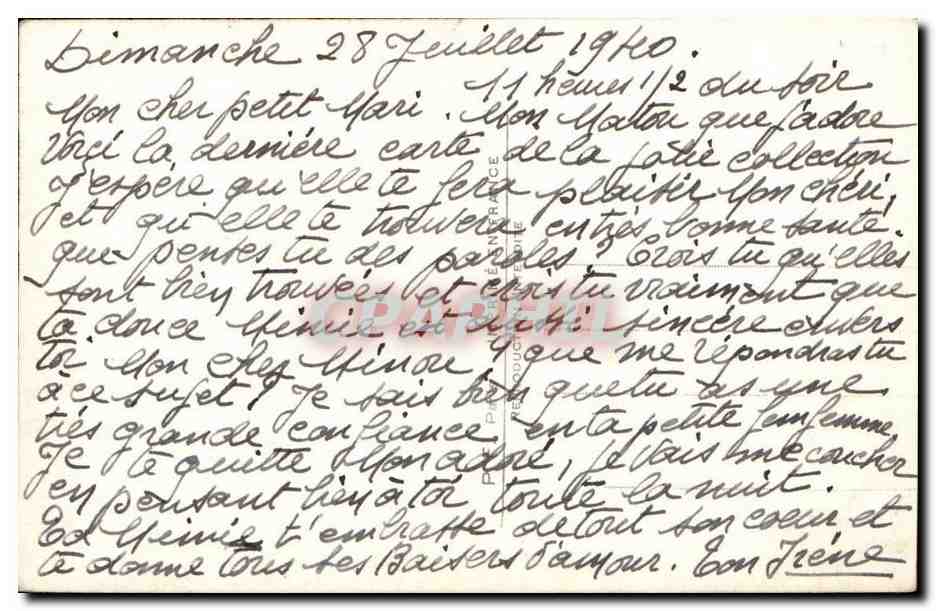 Dimanche 28 Juillet 1940.
11 heures 1/2 du soir
Mon cher petit Mari. Mon Matou que j'adore
Voiçi la derniére carte de la jolie collection
J'espére qu'elle te fera plaisir Mon chéri,
et qu'elle te trouvera en trés bonne santé.
que penses tu des paroles? Crois tu qu'elles
sont bien trouvées et crois tu vraiment que
ta douce Mimie est aussi sincére envers
toi Mon cher Minou, que me répondras tu
à ce sujet? Je sais bien que tu as une
trés grande confiance en ta petite femfemme
Je te quitte Mon adoré, je vais me coucher
en pensant bien à toi toute la nuit.
Ta Mimie t'embrasse de tout son coeur et
te donne tous ses Baisers d'amour. Ton Iréne
CPAPHIL
REPRODUCTION INTERDITE